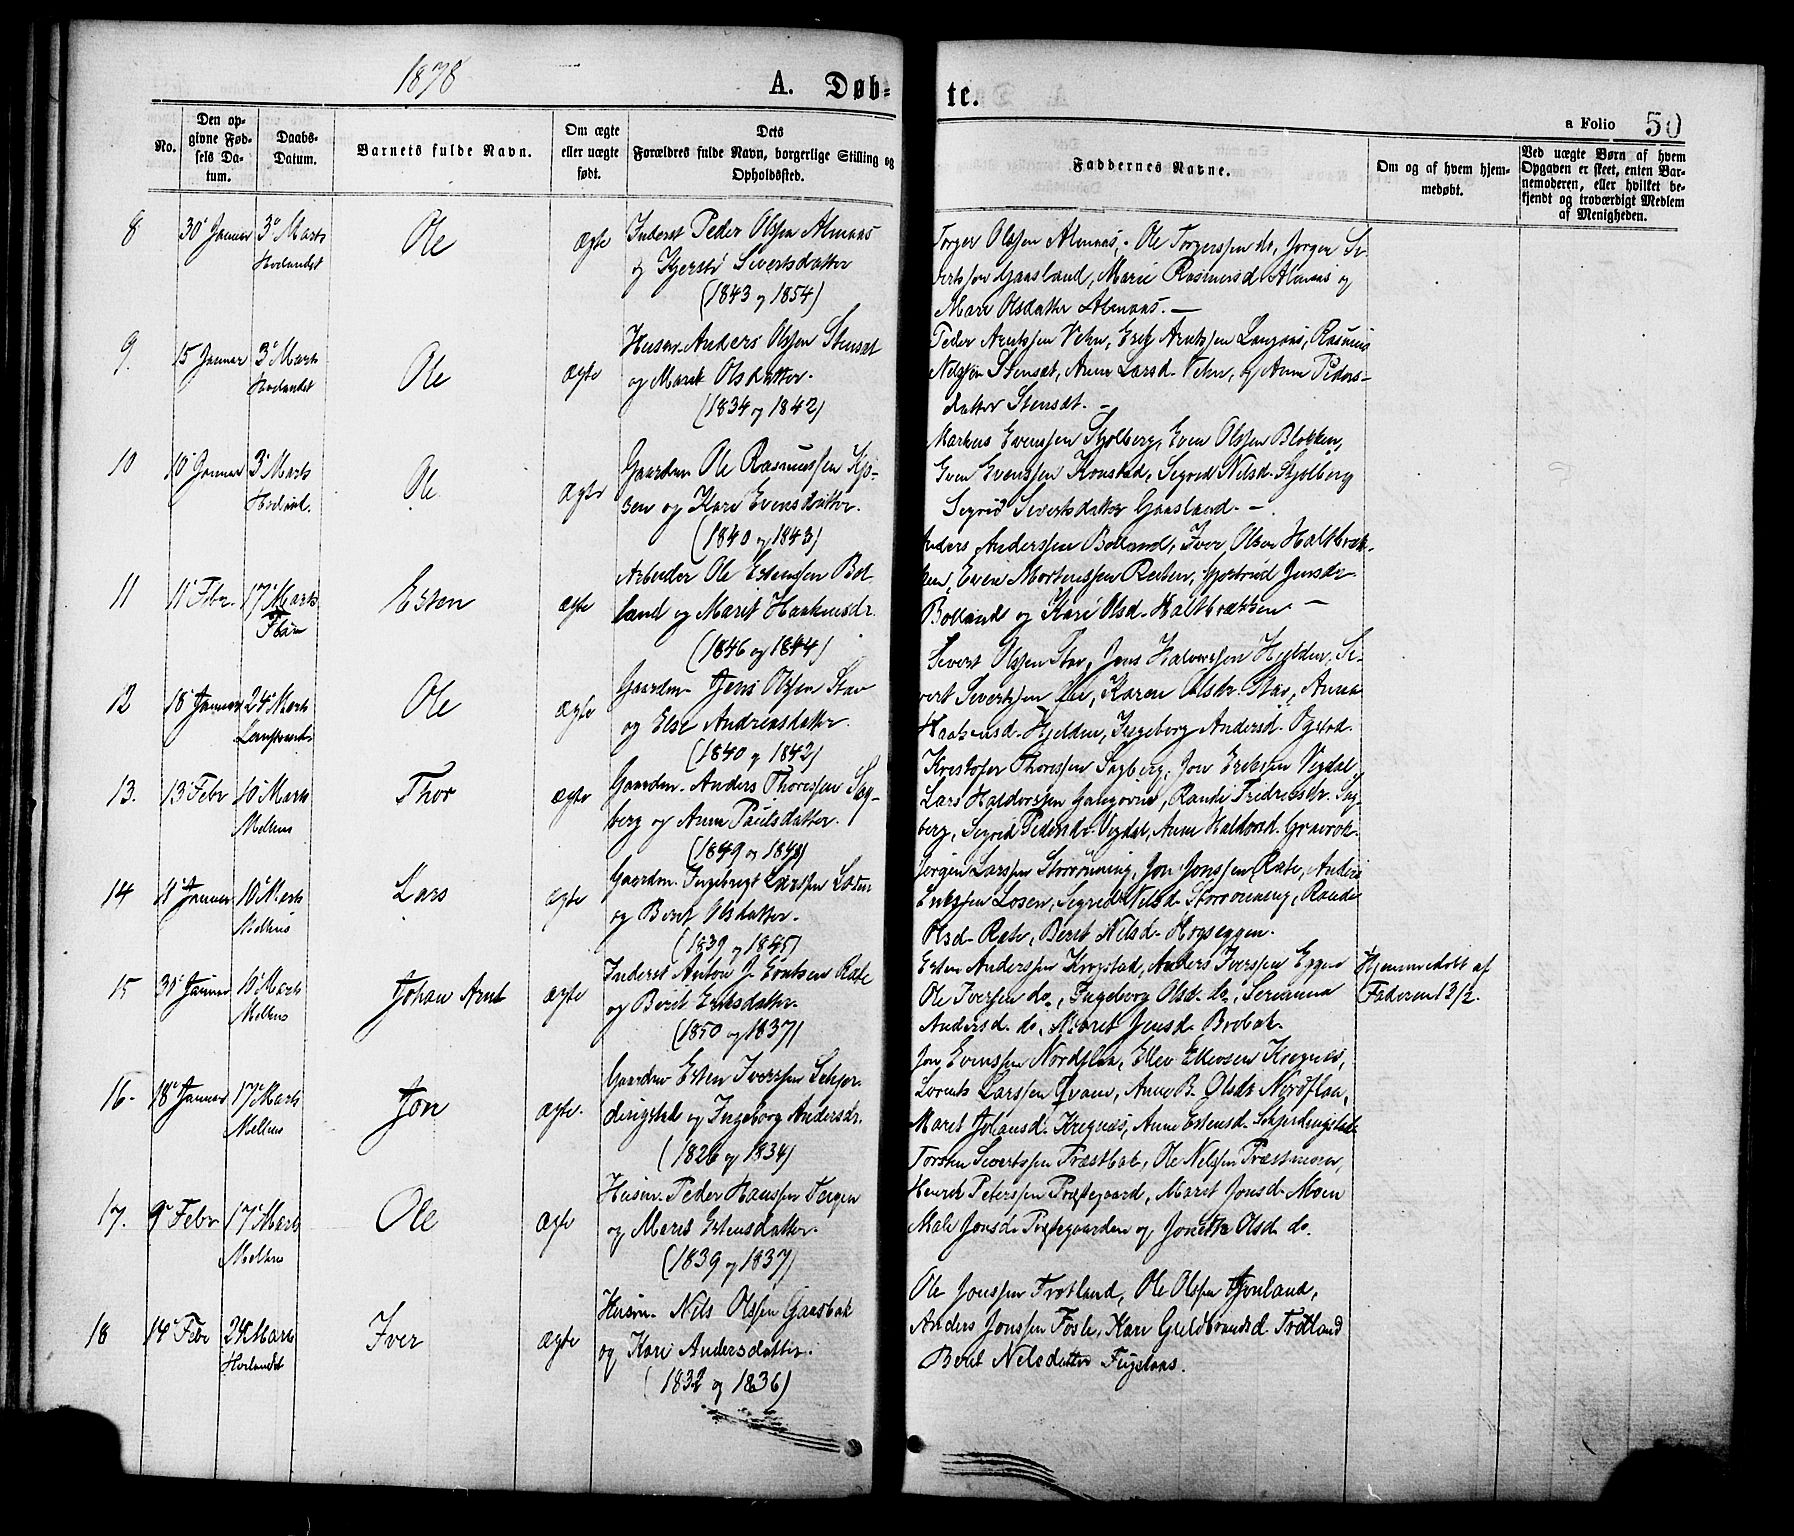 1878
A. Døb-
te.
a Folio 50
No.
Den op-
givne Fød-
sels Da-
tum.
Daabs-
Datum.
Barnets fulde Navn.
Om ægte
eller uægte
født.
Dets
Forældres fulde Navn, borgerlige Stilling og
Opholdssted.
Faddernes Navne.
Om og af hvem hjem-
medøbt.
Ved uægte Børn af hvem
Opgaven er skeet, enten Bar-
nemoderen, eller hvilket be-
kjendt og troværdigt Medlem
af Menigheden.
8 30 Januar 3 Marts Ole Ægte Inderst Peder Olssen Almaas
Hovlandet og Kjersti Sivertsdatter
(1843 og 1854)
Torger Olssen Almaas, Ole Torgerssen do, Jørgen Si-
vertssen Gaasland, Marie Rasmusd. Almaas og
Mari Olsdatter Almaas. —
9. 15 Januar 3 Marts Ole Ægte Husm. Anders Olssen Stensæt
Hovlandet og Marit Olsdatter.
(1834 og 1842)
Peder Arntssen Vehn, Erik Arntssen Langaas, Rasmus
Nilssen Stensæt, Anne Larsd. Vehn, og Anne Peders-
datter Stensæt. —
10 10 Januar 3 Marts Ole Ægte Gaardm. Ole Rasmussen Kjø-
Hovland. sen og Kari Evensdatter.
(1840 og 1843)
Markus Evenssen Skjølberg, Even Olssen Blokken,
Even Evenssen Konstad, Sigrid Nilsd. Skjølberg
Sigrid Sivertsdatter Gaasland. —
11 11 Febr. 17 Marts Esten Ægte Arbeider Ole Estenssen Bol-
Flaa land og Marit Haakensdr.
(1846 og 1844)
Anders Anderssen Bolland, Iver Olsen Haltbræk-
ken, Even Mortenssen Reiten, Gjertrud Jensdr
Bolland og Kari Olsd. Haltbrækken —
12 18 Januar 24 Marts Ole Ægte Gaardm. Jens Olssen Stav
og Else Andreasdatter.
(1840 og 1842)
Sivert Olssen Stav, Jens Halvorssen Hjelden, Si-
vert Sivertssen Øie, Karen Olsdr Stav, Anna
Haakensd. Hjelden, Ingeborg Andersd. Øgstad.
13. 13 Febr 10 Marts Thor Ægte Gaardm. Anders Thoressen Sag-
Melhus berg og Anne Paulsdatter.
(1849 og 1848)
Kristofer Thoressen Sagberg, Jon Eriksen Vigdal,
Lars Haldorssen, Randi Fredriksdr. Sag-
berg, Sigrid Pedersdr Vigdal, Anne Haldorsd. Gravrok.
14 11 Januar 10 Marts Lars Ægte Gaardm. Ingebrigt Larssen Losen
Melhus og Berit Olsdatter.
(1839 og 1845)
Jørgen Larssen Storrønning, Jon Jonssen Rate, Anders
Erikssen Losen, Sigrid Nilsd. Storrønning, Randi
Olsd. Rate, Berit Nilsd. Høgseggen.
15 30 Januar 10 Marts Johan Arnt Ægte Inderst Anton J. Estensen Rate
Melhus og Berit Eriksdatter.
(1850 og 1837)
Esten Anderssen Krogstad, Anders Iverssen Eggen
Ole Iversen do, Ingeborg Olsd. do, Serianna
Andersd. do, Marit Jensd. Brobak.
Hjemmedøbt af
Faderen 13/2.
16. 18 Januar 17 Marts Jon Ægte. Gaardm Esten Iverssen Schjer-
Melhus dingstad og Ingeborg Andersdr.
(1826 og 1834)
Jon Evenssen Nordflaa, Ellev Ellevsen Kregnæs,
Lorents Larssen Qvam, Anne B. Olsdr Nordflaa,
Maret Johansd. Kregnæs, Anne Estensd. Schjerdingstad.
17. 9 Febr 17 Marts Ole Ægte Husm. Peder Hanssen Teigen
Melhus og Marit Estensdatter.
(1839 og 1837)
Torsten Sivertssen Præstbak, Ole Nilssen Præstmoen,
Henrik Peterssen Præstegaard, Maret Jonsd. Moen
Mali Jonsd. Præstegaarden og Jonetta Olsd do.
18 14 Febr 24 Marts Iver Ægte Husm. Nils Olssen Gaasbak
Hovlandet og Kari Andersdatter.
(1832 og 1836)
Ole Jonssen Frøtland, Ole Olssen,
Anders Jonssen Fosle, Kari Guldbrandsd. Frøtland
Berit Nilsdatter Fuglaas.